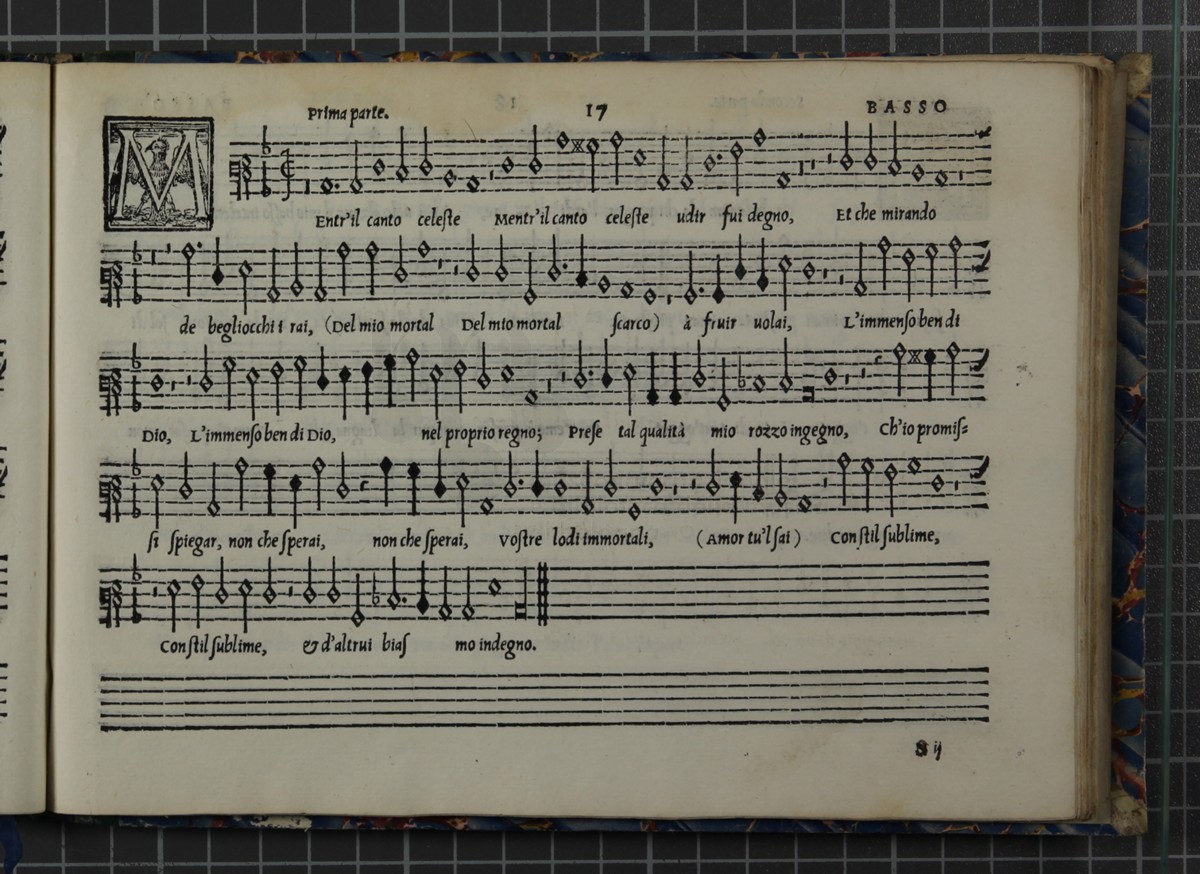 Prima parte. 17 BASSO
MEntr'il canto celeſte Mentr'il canto celeſte udir fui degno, Et che mirando
de begliocchi i rai, (Del mio mortal Del mio mortal ſcarco) à fruir uolai, L'immenſo ben di
Dio, L'immenſo ben di Dio, nel proprio regno; Preſe tal qualità mio rozzo ingegno, Ch'io promiſ=
ſi ſpiegar, non che ſperai, non che ſperai, Voſtre lodi immortali, (Amor tu'l ſai) Con ſtil ſublime,
Con ſtil ſublime, & d'altrui biaſ mo indegno.
S ij